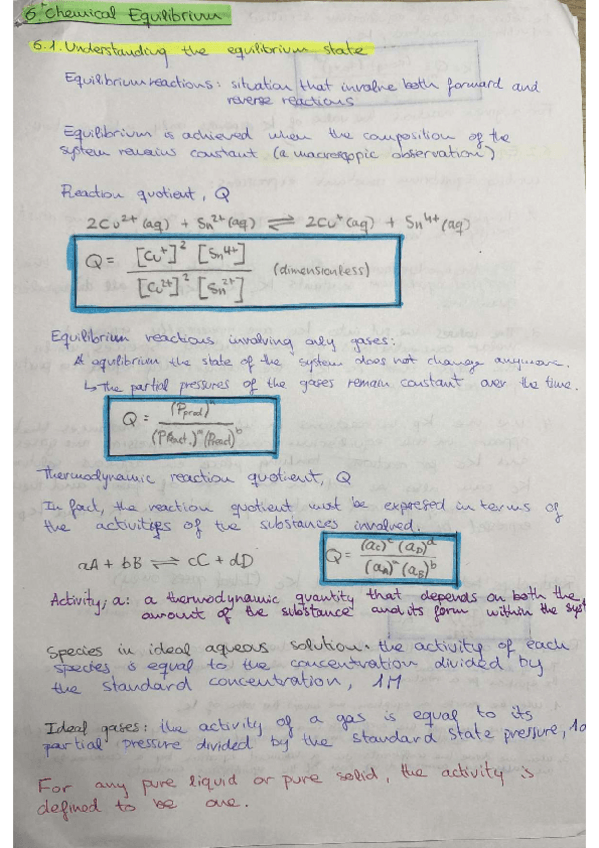 6 Chemical Equilibrium
6.1. Understanding the equilibrium state
Equilibrium reactions: situation that involve both forward and
reverse reactions
Equilibrium is achieved when the composition of the
system remains constant (a macroscopic observation)
Reaction quotient, Q
2Cu²⁺(aq) + Sn²⁺(aq) ⇌ 2Cu⁺(aq) + Sn⁴⁺(aq)
Q = [Cu⁺]² [Sn⁴⁺] / [Cu²⁺]² [Sn²⁺] (dimensionless)
Equilibrium reactions involving only gases:
At equilibrium the state of the system does not change anymore.
↳ The partial pressures of the gases remain constant over the time.
Q = (Pprod)ⁿ / (Preact.)ᵃ (Preact)ᵇ
Thermodynamic reaction quotient, Q
In fact, the reaction quotient must be expressed in terms of
the activities of the substances involved.
aA + bB ⇌ cC + dD
Q = (aC)ᶜ (aD)ᵈ / (aA)ᵃ (aB)ᵇ
Activity, a: a thermodynamic quantity that depends on both the
amount of the substance and its form within the syst
Species in ideal aqueous solution: the activity of each
species is equal to the concentration divided by
the standard concentration, 1M
Ideal gases: the activity of a gas is equal to its
partial pressure divided by the standard state pressure, 1a
For any pure liquid or pure solid, the activity is
defined to be one.